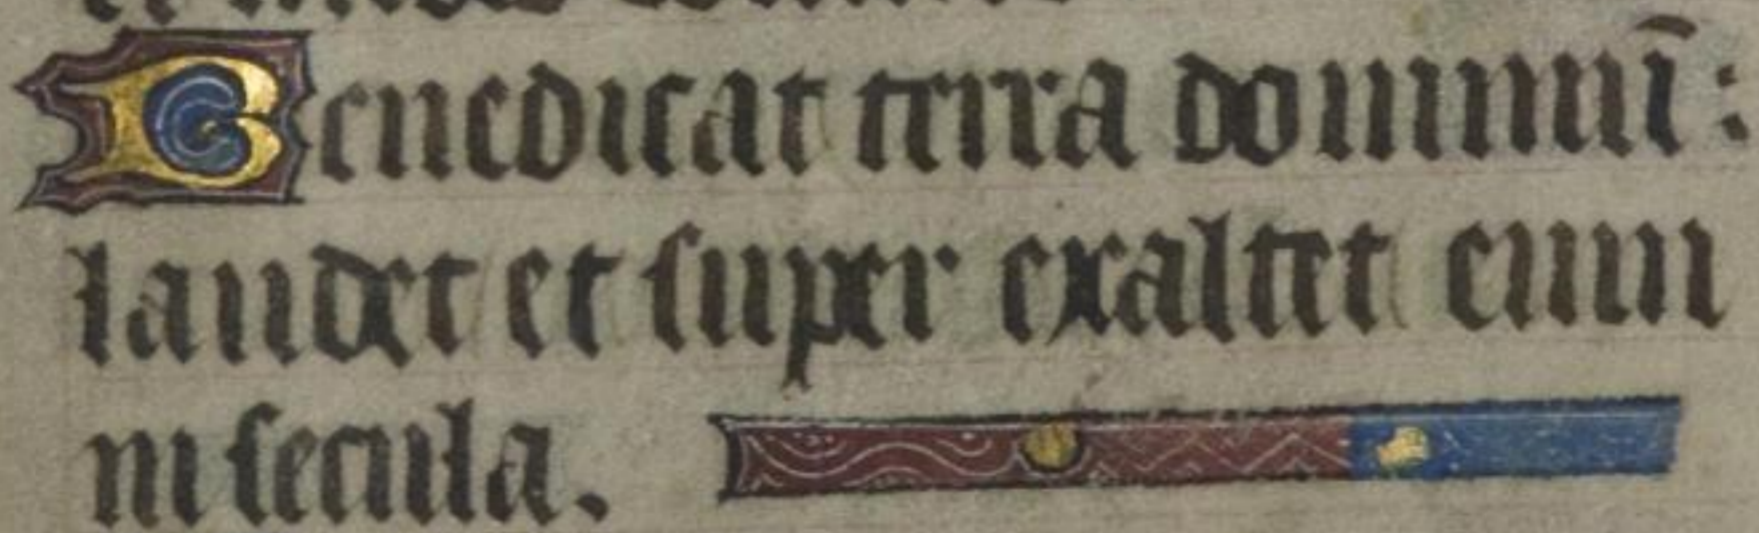 Benedicat terra dominū:
laudet et super exaltet eum
in secula.